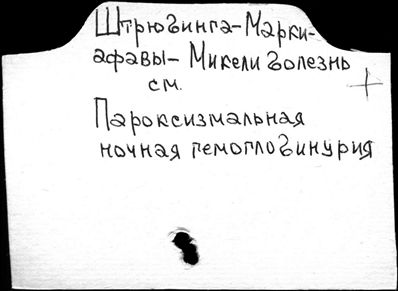 Штрюбинга-Марки-
афавы- Микели болезнь
см.
Пароксизмальная
ночная гемоглобинурия